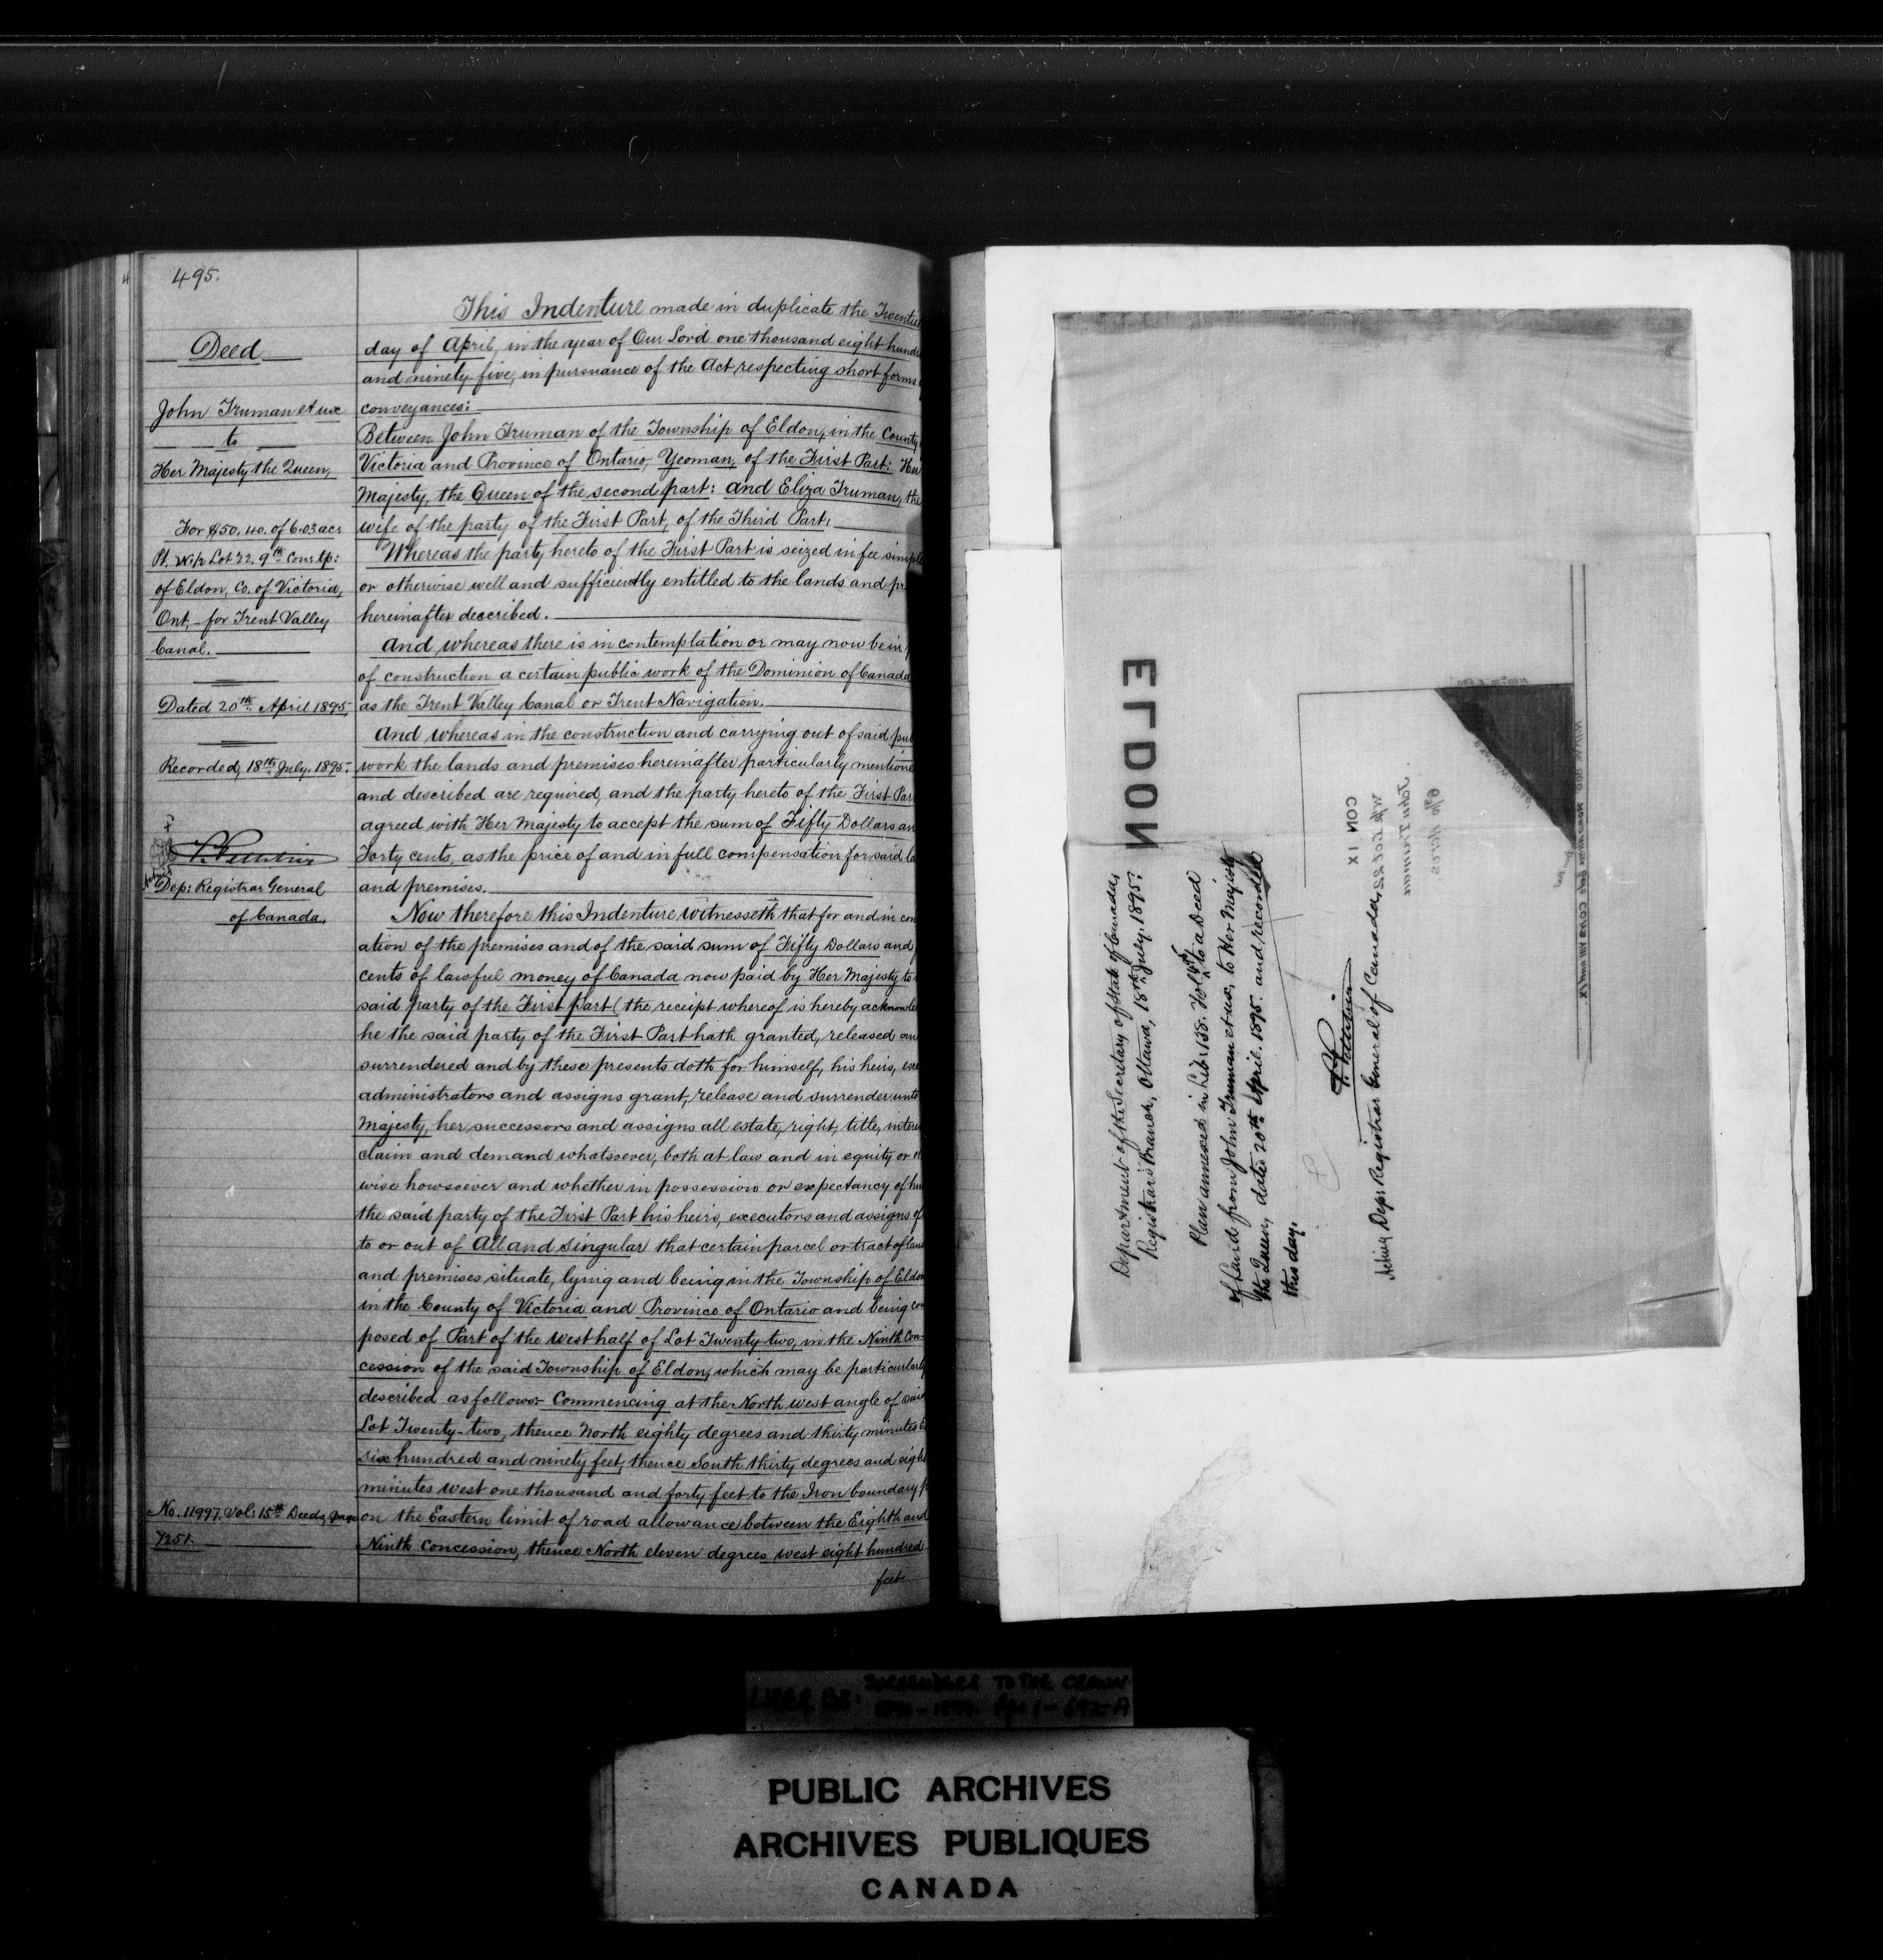 495.
Deed
John Truman et ux
to
Her Majesty the Queen,
For $50.40. of 6.03 acs
Pt. W½ Lot 22. 9th Con: tp:
of Eldon, Co. of Victoria,
Ont, - for Trent Valley
Canal.
Dated 20th April 1895
Recorded, 18th July. 1895.
Acting
Dep: Registrar General
of Canada.
No. 11997. Vol: 15th Deeds, page
7251.
This Indenture made in duplicate the
day of April, in the year of Our Lord one thousand eight
and ninety-five, in pursuance of the Act respecting short forms
conveyances:
Between John Truman of the Township of Eldon, in the County
Victoria and Province of Ontario, Yeoman, of the First Part: Her
Majesty, the Queen of the second part: and Eliza Truman, the
wife of the party of the First Part, of the Third Part:
Whereas the party hereto of the First Part is seized in fee
or otherwise well and sufficiently entitled to the lands and
hereinafter described.
And whereas there is in contemplation or may now be in
of construction a certain public work of the Dominion of Canada
as the Trent Valley Canal or Trent Navigation.
And whereas in the construction and carrying out of said
work the lands and premises hereinafter particularly
and described are required, and the party hereto of the First
agreed with Her Majesty to accept the sum of Fifty Dollars
Forty cents, as the price of and in full compensation for said
and premises.
Now therefore this Indenture witnesseth that for and in
ation of the premises and of the said sum of Fifty Dollars and
cents of lawful money of Canada now paid by Her Majesty to
said party of the First part (the receipt whereof is hereby
he the said party of the First Part hath granted, released
surrendered and by these presents doth for himself, his heirs,
administrators and assigns grant, release and surrender
Majesty, her successors and assigns all estate, right, title,
claim and demand whatsoever, both at law and in equity or
wise howsoever and whether in possession or expectancy of
the said party of the First Part his heirs, executors and assigns of
to or out of All and Singular that certain parcel or tract of
and premises situate, lying and being in the Township of
in the County of Victoria and Province of Ontario and being
posed of Part of the west half of Lot Twenty-two, in the Ninth Con-
cession of the said Township of Eldon, which may be particularly
described as follows:- Commencing at the North west angle of
Lot Twenty-two, thence North eighty degrees and thirty minutes
six hundred and ninety feet, thence South thirty degrees and
minutes West one thousand and forty feet to the Iron boundary
on the Eastern limit of road allowance between the Eighth and
Ninth Concession, thence North eleven degrees west eight hundred
feet
ELDON
Department of the Secretary of State of Canada,
Registrar's Branch, Ottawa, 18th July. 1895.
Plan annexed in Lib: 138. Fol: 495 to a Deed
of Land from John Truman et ux, to Her Majesty
the Queen, dated 20th April. 1895. and recorded
this day.
Acting Dep: Registrar General of Canada.
CON IX
W½ Lot 22
John Truman
SURRENDERS TO THE CROWN
PUBLIC ARCHIVES
ARCHIVES PUBLIQUES
CANADA